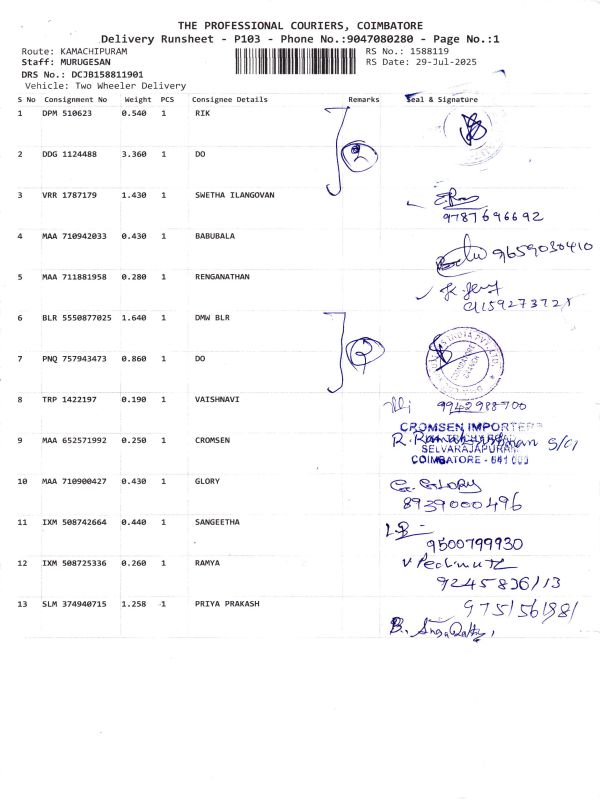 THE PROFESSIONAL COURIERS, COIMBATORE
Delivery Runsheet - P103 - Phone No.:9047080280 - Page No.:1
Route: KAMACHIPURAM RS No.: 1588119
Staff: MURUGESAN RS Date: 29-Jul-2025
DRS No.: DCJB158811901
Vehicle: Two Wheeler Delivery
S No Consignment No Weight PCS Consignee Details Remarks Seal & Signature
1 DPM 510623 0.540 1 RIK
2 DDG 1124488 3.360 1 DO
2
3 VRR 1787179 1.430 1 SWETHA ILANGOVAN
9787696692
4 MAA 710942033 0.430 1 BABUBALA
9659030410
5 MAA 711881958 0.280 1 RENGANATHAN
6 BLR 5550877025 1.640 1 DMW BLR
7 PNQ 757943473 0.860 1 DO
INDIA PVT. LTD.
COIMBATORE
8 TRP 1422197 0.190 1 VAISHNAVI
9942988700
CROMSEN IMPORTERS
9 MAA 652571992 0.250 1 CROMSEN
SELVARAJAPURAM
COIMBATORE - 641 003
10 MAA 710900427 0.430 1 GLORY
G. GLORY
8939000496
11 IXM 508742664 0.440 1 SANGEETHA
9500799930
12 IXM 508725336 0.260 1 RAMYA
9245836113
13 SLM 374940715 1.258 1 PRIYA PRAKASH
9751561981